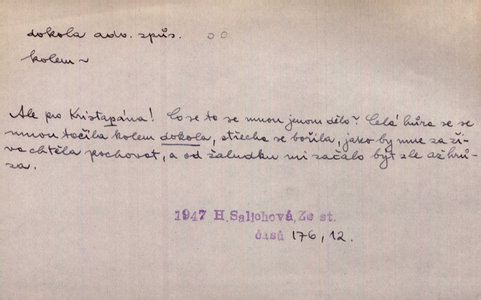 dokola adv. způs.
kolem ~
Ale pro Kristapána! Co se to se mnou jenom dělo? Celá hůra se se
mnou točila kolem dokola, střecha se bořila, jako by mne za ži-
va chtěla pochovat, a od žaludku mi začalo být zle až hrů-
za.
1947 H. Saljohová, Ze st.
časů 176, 12.